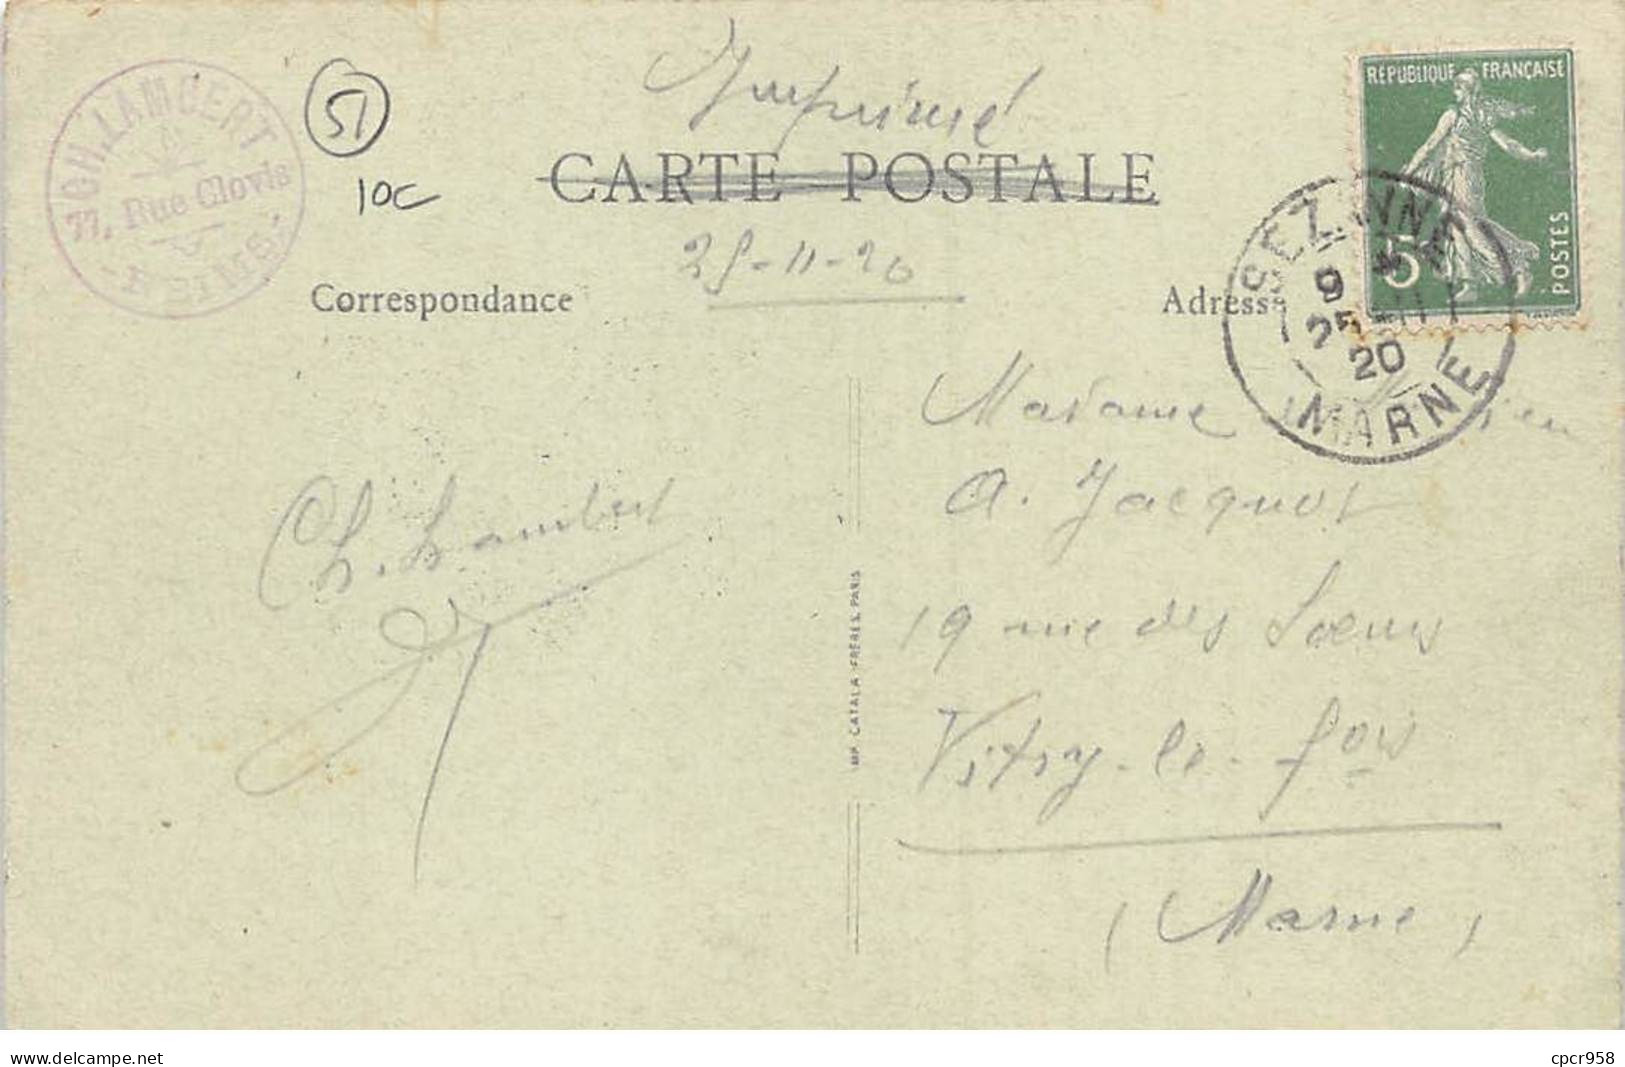 CH. LAMBERT
77, Rue Clovis
REIMS
51
10c
Imprimé
CARTE POSTALE
25-11-20
Correspondance
Adresse
RÉPUBLIQUE FRANÇAISE
5
POSTES
SEZANNE
9
25-11
20
MARNE
Madame
A. Jacquot
19 rue des Soeurs
Vitry-le-fois
(Marne)
Ch. Lambert
IMP. CATALA FRÈRES, PARIS
www.delcampe.net
cpcr958